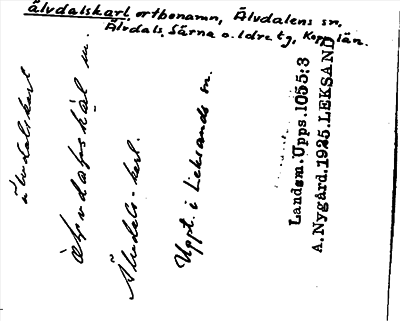 älvdalskarl, ortbonamn, Älvdalens sn,
Älvdals, Särna o. Idre tg, Kopp. län.
älvdalskarl
Älvdals-karl.
Uppt. i Leksands sn.
Landsm. Upps. 1055:3
A. Nygård. 1925. LEKSAND